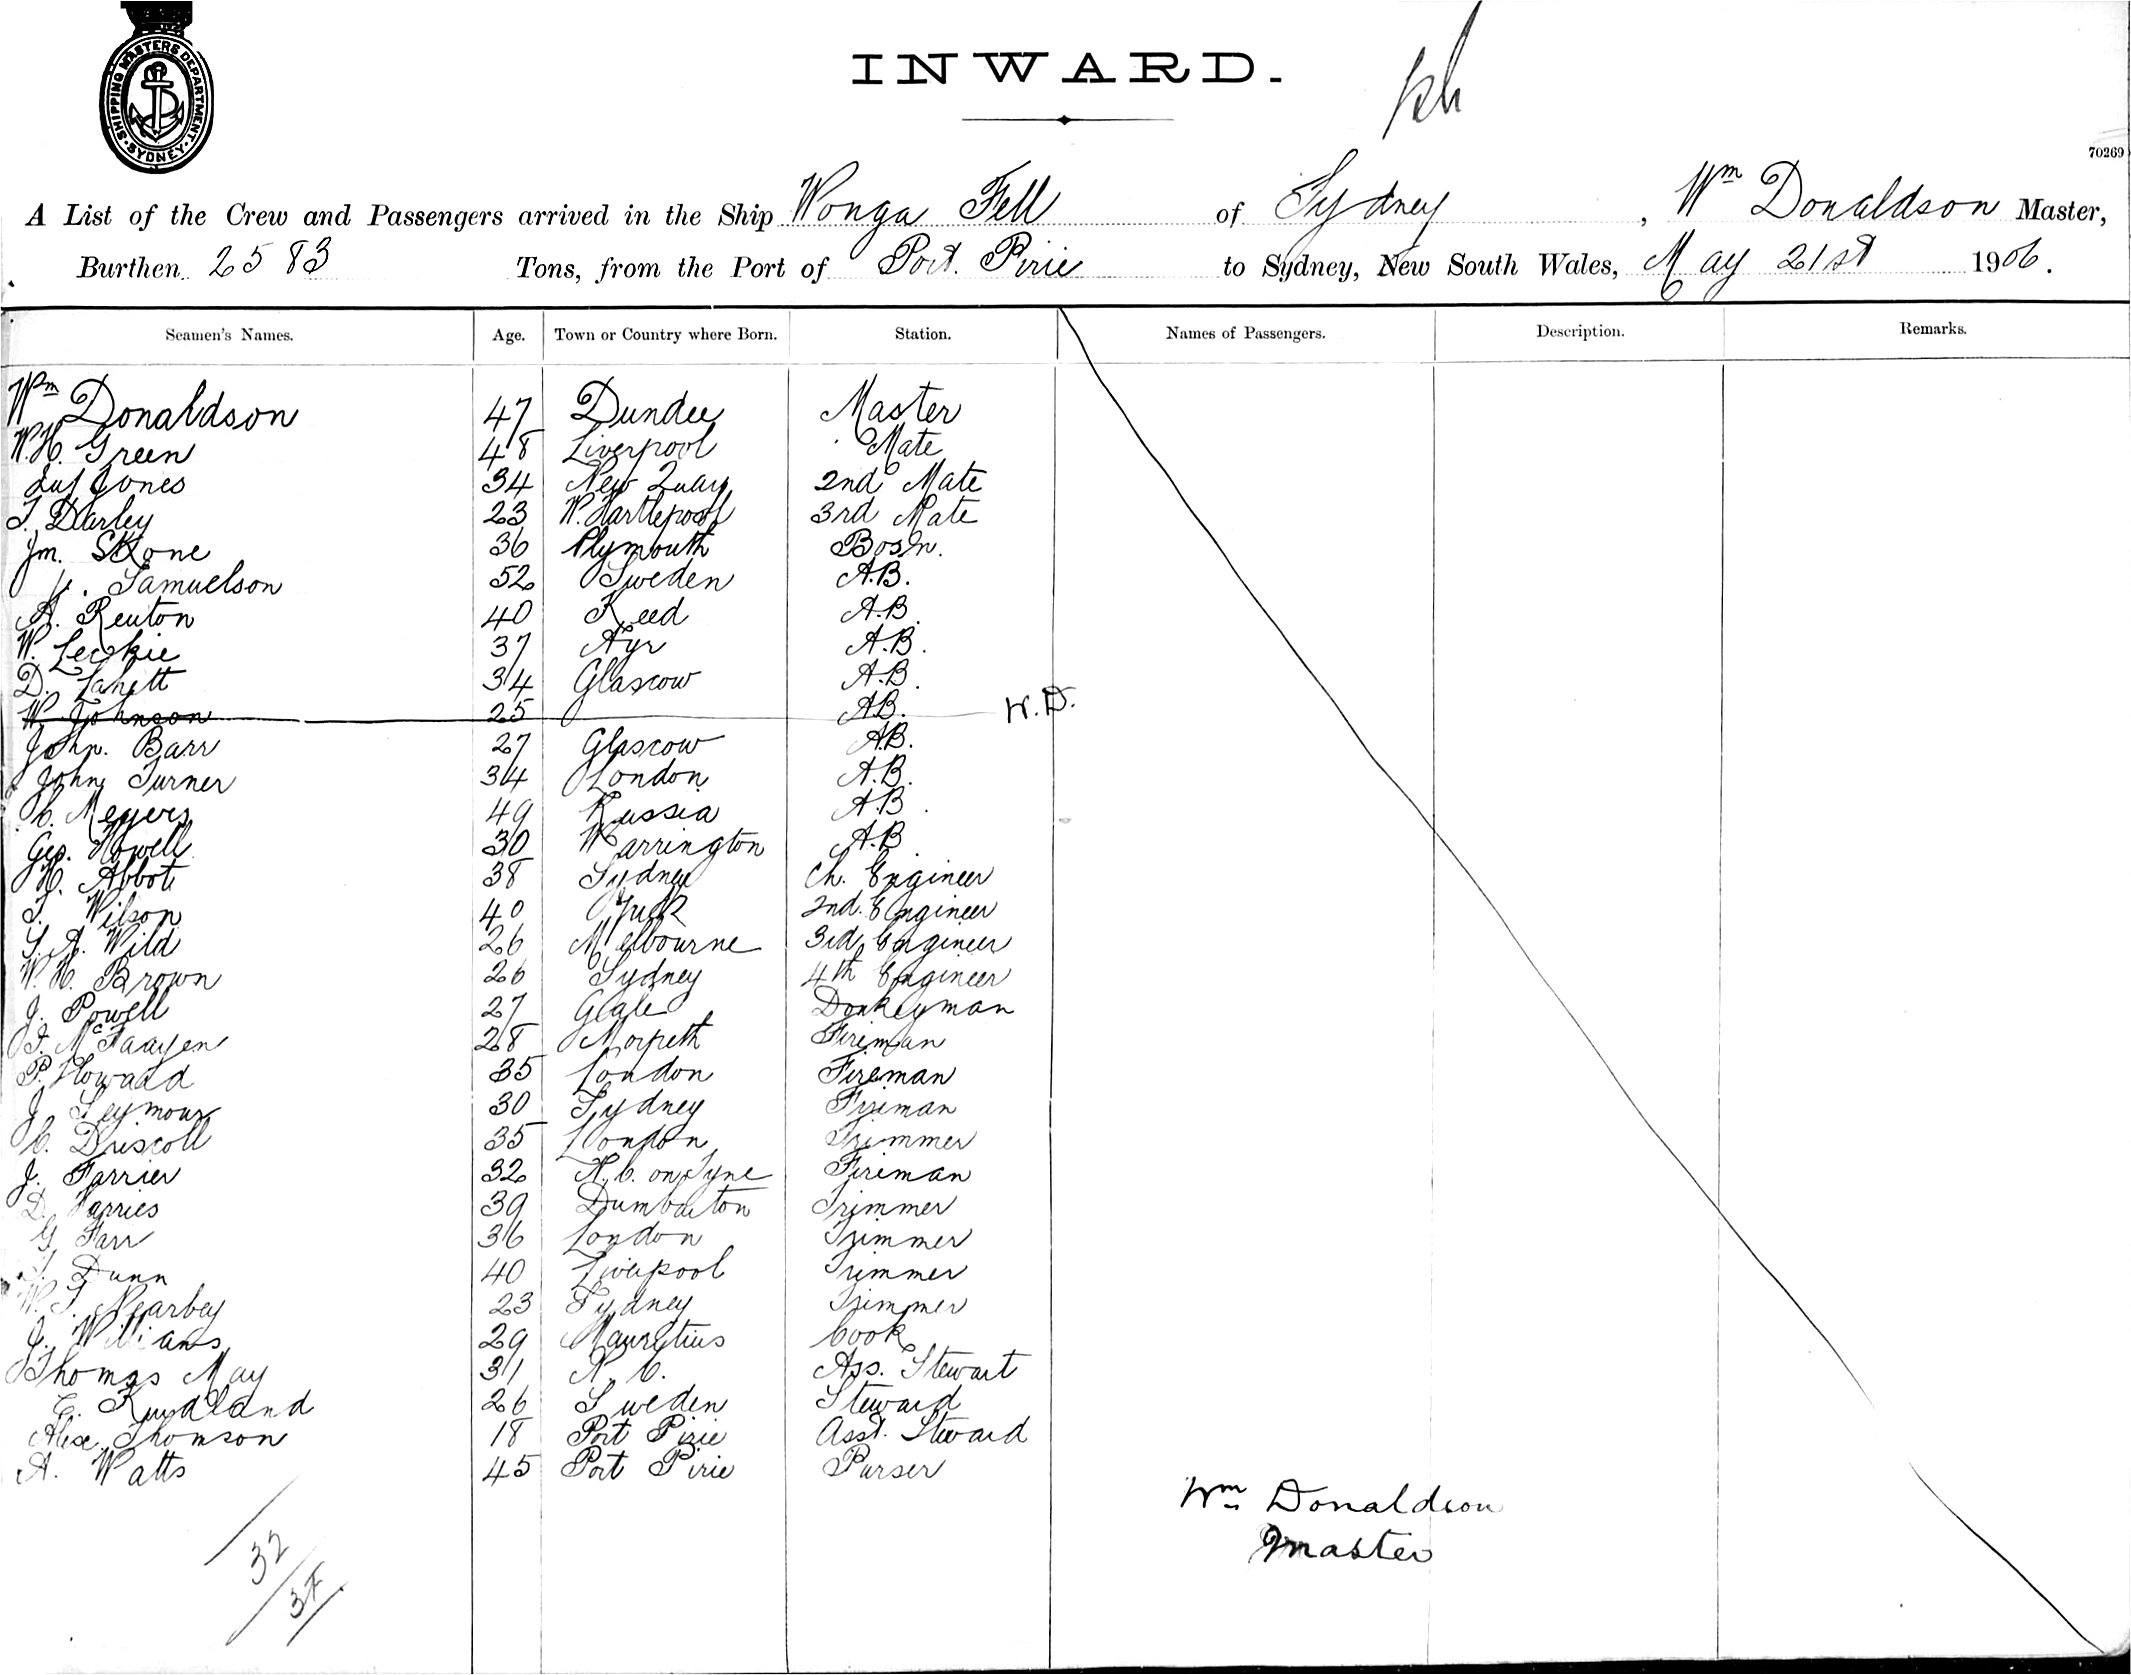 SHIPPING MASTERS DEPARTMENT
SYDNEY
INWARD.
70269
A List of the Crew and Passengers arrived in the Ship Wonga Fell of Sydney, Wm Donaldson Master,
Burthen 2583 Tons, from the Port of Port Pirie to Sydney, New South Wales, May 21st 1906.
Seamen's Names. Age. Town or Country where Born. Station. Names of Passengers. Description. Remarks.
Wm Donaldson 47 Dundee Master
W.H. Green 48 Liverpool Mate
Jones 34 New Quay 2nd Mate
T. Darley 23 W. Hartlepool 3rd Mate
Jm. Skone 36 Plymouth Bosn.
Samuelson 52 Sweden A.B.
A. Renton 40 A.B.
W. Leckie 37 Ayr A.B.
D. 34 Glascow A.B.
W. Johnson 25 A.B. W.D.
John. Barr 27 Glascow A.B.
John Turner 34 London A.B.
C. Meyers 49 Russia A.B.
Geo. Howell 30 Warrington A.B
H. Abbot 38 Sydney Ch. Engineer
T. Wilson 40 2nd. Engineer
S. A. Wild 26 Melbourne 3rd Engineer
W. H. Brown 26 Sydney 4th Engineer
J. Powell 27 Donkeyman
28 Morpeth Fireman
P. Howard 35 London Fireman
J. Seymour 30 Sydney Fireman
C. Driscoll 35 London Trimmer
J. Farrier 32 N. C. on Tyne Fireman
D. Harries 39 Dumbarton Trimmer
G Farr 36 London Trimmer
Dunn 40 Liverpool Trimmer
W. T. Nearbey 23 Sydney Trimmer
J. Williams 29 Mauritius Cook
Thomas May 31 N. C. Ass. Stewart
E. 26 Sweden Steward
Alex. Thomson 18 Port Pirie Asst. Steward
A. Watts 45 Port Pirie Purser
Wm Donaldson
Master
32